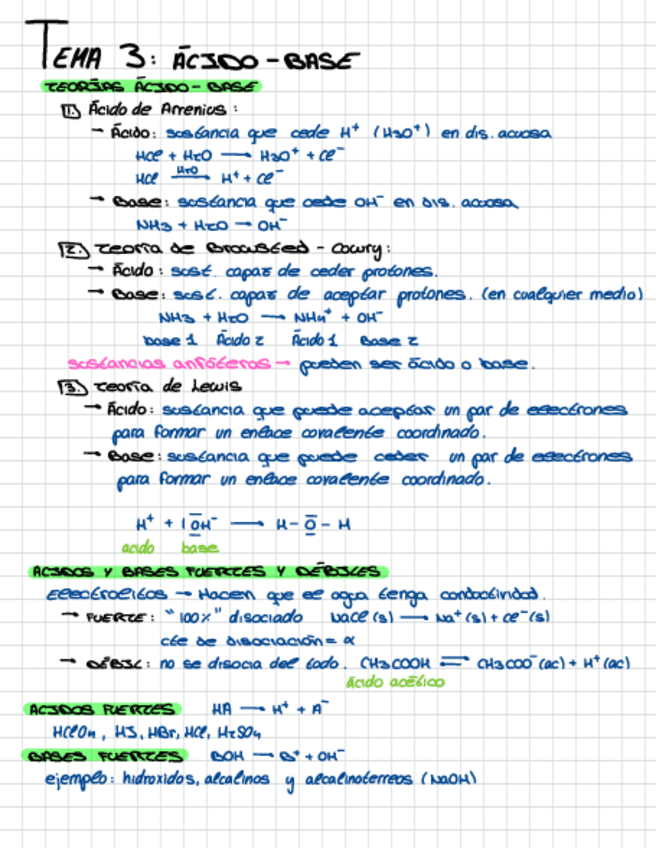 TEMA 3: ÁCIDO-BASE
TEORÍAS ÁCIDO-BASE
1. Ácido de Arrenius:
→ Ácido: sustancia que cede H⁺ (H3O⁺) en dis. acuosa
HCl + H2O → H3O⁺ + Cl⁻
HCl —H2O→ H⁺ + Cl⁻
→ Base: sustancia que cede OH⁻ en dis. acuosa
NH3 + H2O → OH⁻
2. Teoría de Brownsted-Lowry:
→ Ácido: sust. capaz de ceder protones.
→ Base: sust. capaz de aceptar protones. (en cualquier medio)
NH3 + H2O → NH4⁺ + OH⁻
base 1 Ácido 2 Ácido 1 Base 2
sustancias anfóteros → pueden ser ácido o base.
3. Teoría de Lewis
→ Ácido: sustancia que puede aceptar un par de electrones
para formar un enlace covalente coordinado.
→ Base: sustancia que puede ceder un par de electrones
para formar un enlace covalente coordinado.
H⁺ + |O̲̅H⁻ → H-O̲̅-H
acido base
ACIDOS Y BASES FUERTES Y DÉBILES
Electrolitos → Hacen que el agua tenga conductividad.
→ FUERTE: "100%" disociado NaCl (s) → Na⁺(s) + Cl⁻(s)
cte de disociación = α
→ DÉBIL: no se disocia del todo. CH3COOH ⇌ CH3COO⁻(ac) + H⁺(ac)
Ácido acético
ACIDOS FUERTES HA → H⁺ + A⁻
HClO4, HI, HBr, HCl, H2SO4
BASES FUERTES BOH → B⁺ + OH⁻
ejemplo: hidroxidos, alcalinos y alcalinoterreos (NaOH)